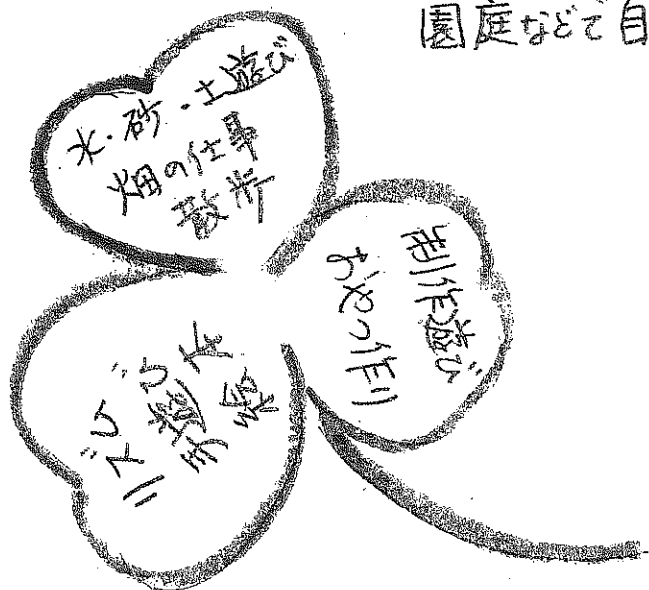 園庭などで自
水・砂・土遊び
畑の仕事
散歩
制作遊び
おやつ作り
リズム遊び